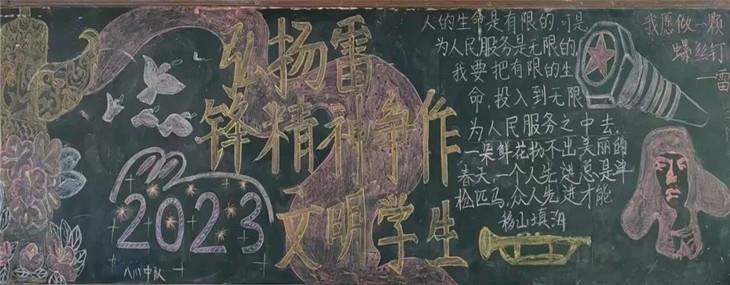 弘扬雷
锋精神争作
文明学生
2023
八川中队
人的生命是有限的可是
为人民服务是无限的
我要把有限的生
命,投入到无限
为人民服务之中去.
一朵鲜花扮不出美丽的
春天,一个人先进总是单
枪匹马,众人先进才能
移山填海
我愿做一颗
螺丝钉
—雷